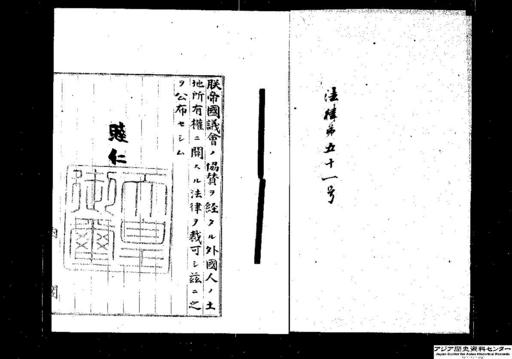 法律第五十一号
朕帝國議會ノ協贊ヲ経タル外國人ノ土
地所有權ニ關スル法律ヲ裁可シ茲ニ之
ヲ公布セシム
睦仁
天皇
御璽
アジア歴史資料センター
Japan Center for Asian Historical Records